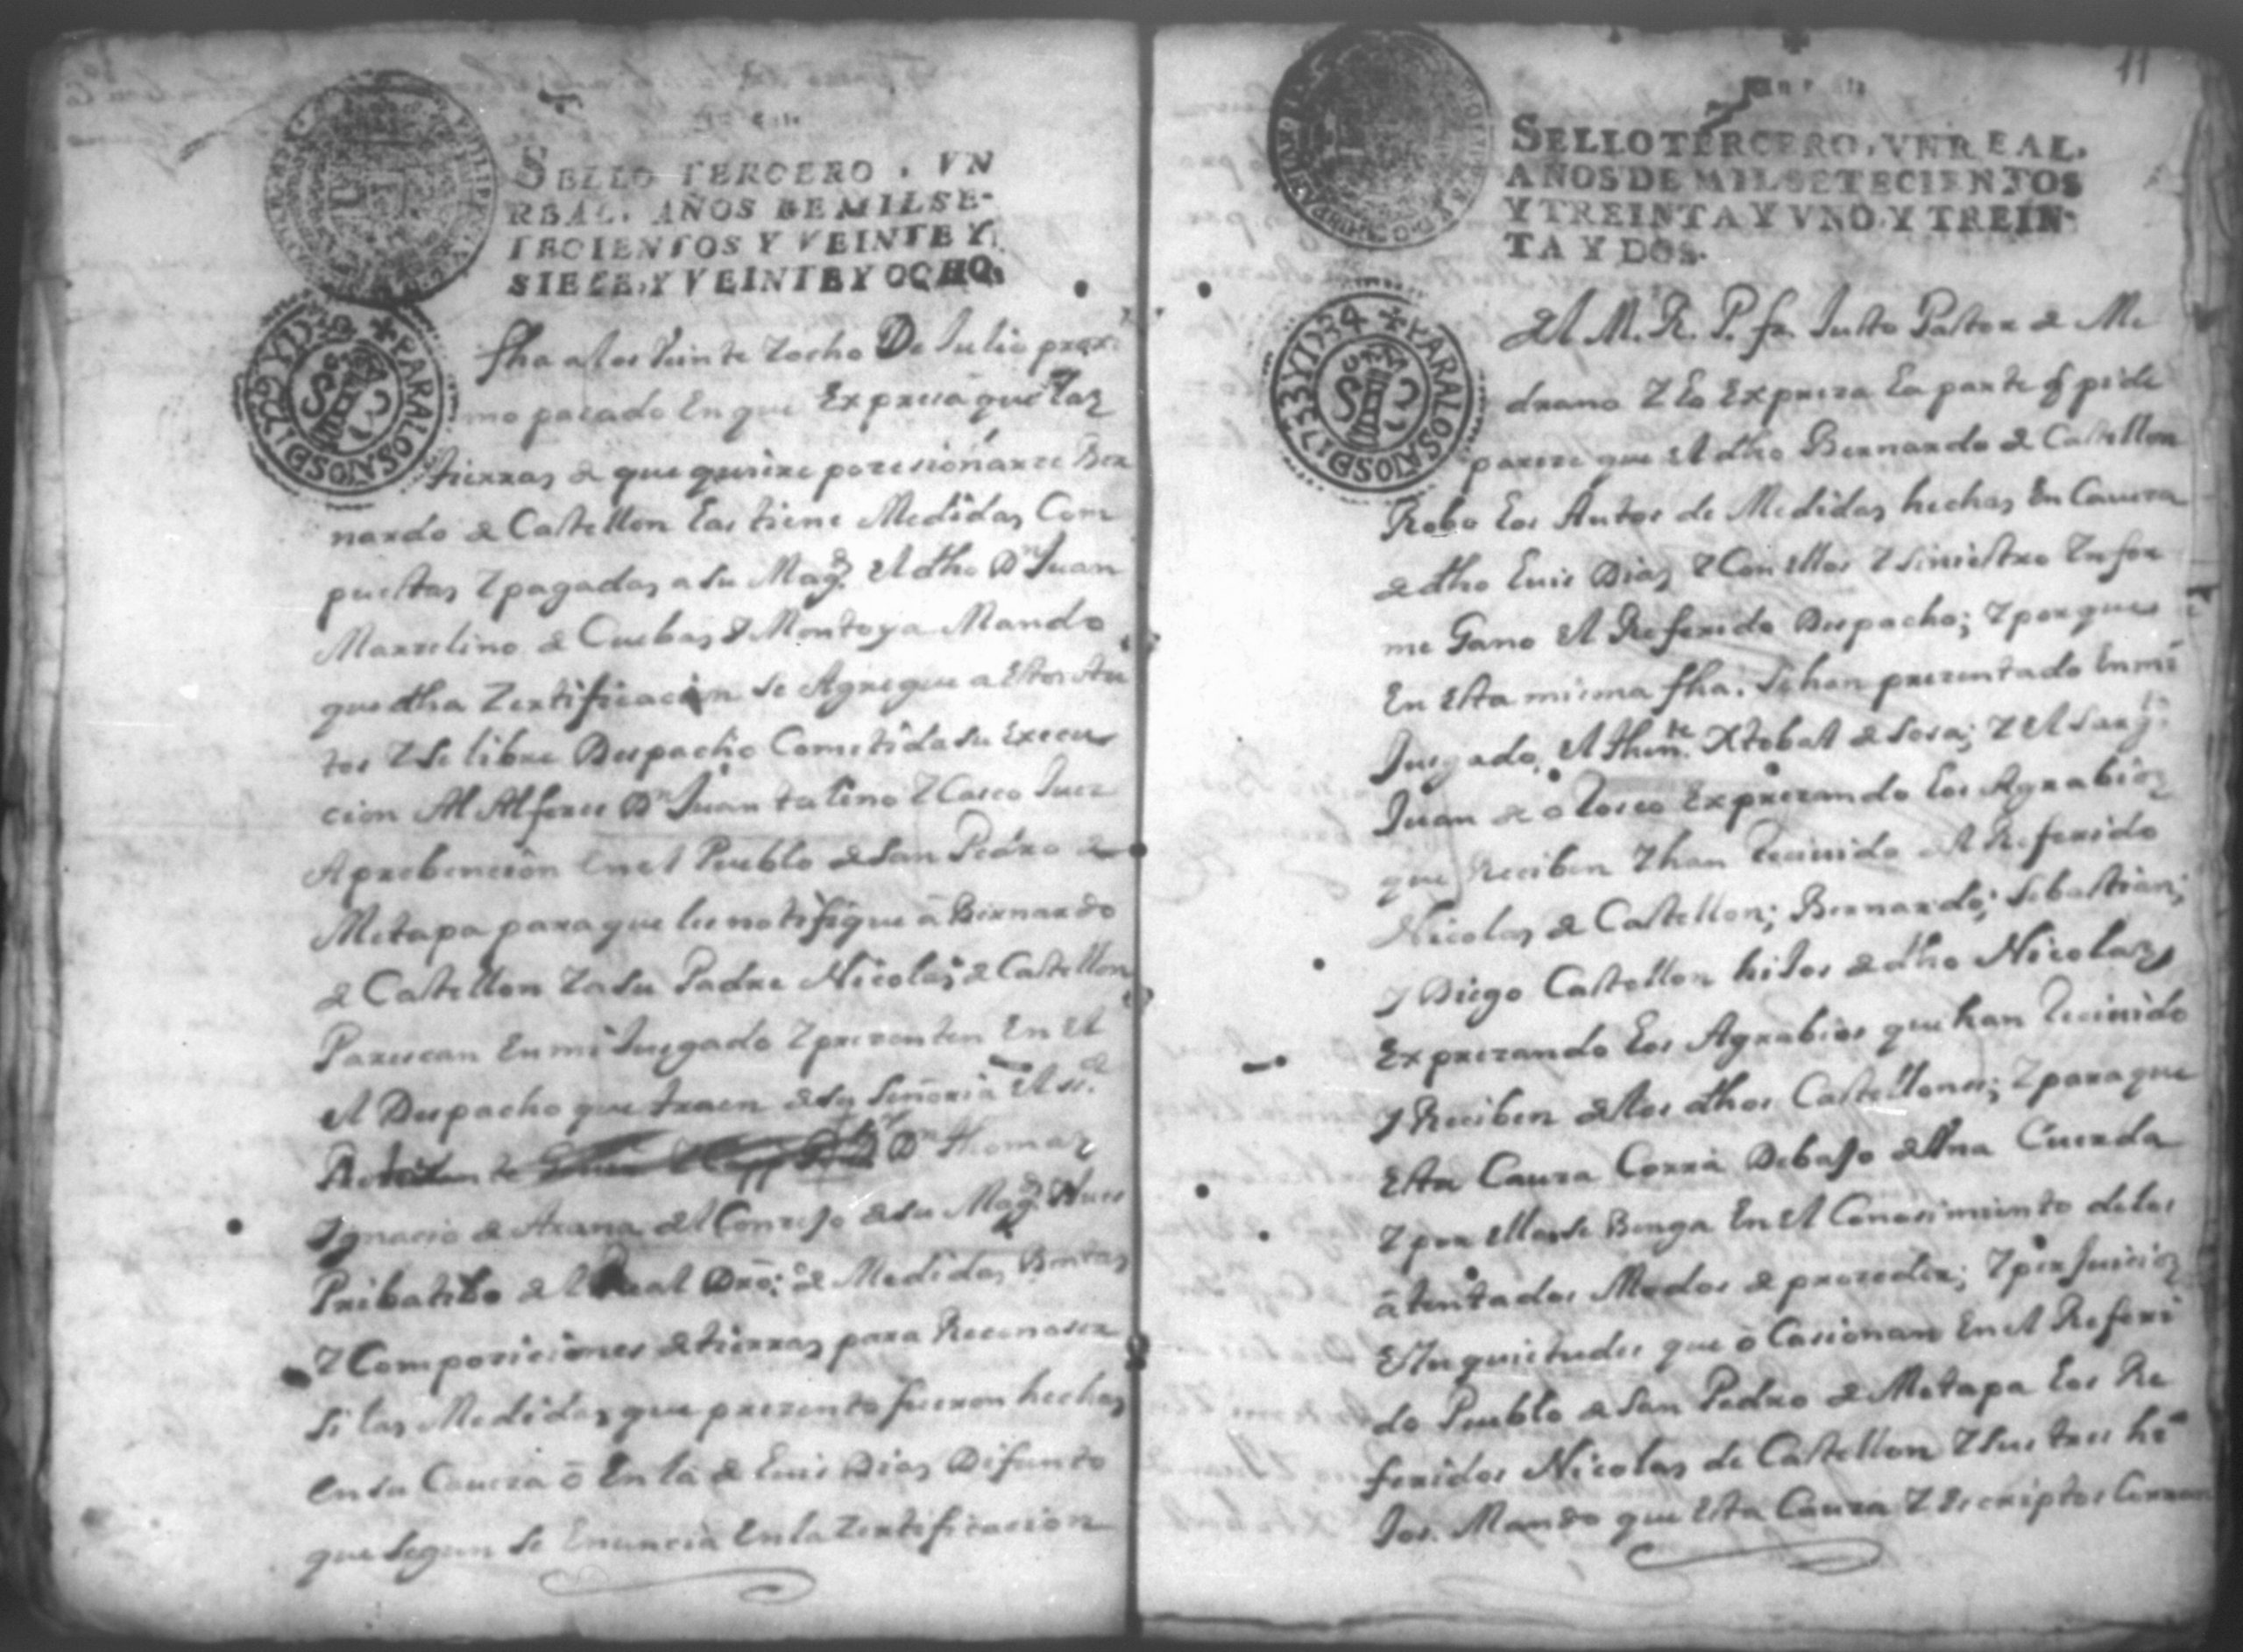 SELLO TERCERO, VN
REAL, AÑOS DE MIL SE-
TECIENTOS Y VEINTE Y
SIETE, Y VEINTE Y OCHO.
PARA LOS AÑOS D
fha a los Veinte Y ocho De Julio proxi
mo pasado En que Expresa que las
tierras de que quiere posesionarse Ber
nardo de Castellon Las tiene Medidas Com
puestas Y pagadas a su Magd. El dho Dn Juan
Marselino de Cuebas Y Montoya Mando
que dha Zertificacion se Agregue a Estos Au
tos Y se libre Despacho Cometida su Execu
cion Al Alferes Dn Juan talino Y Casco Juez
A prebension En el Pueblo de San Pedro de
Metapa para que les notifique â Bernardo
de Castellon Y a su Padre Nicolas de Castellon
Parescan En mi Jusgado Y presenten En El
El Despacho que traen de su Señoria El
Dn Thomas
Ygnacio de Arana del Consejo de su Magd. Jues
Pribatibo del Real Dro: de Medidas Bentas
Y Composiciones de tierras para Reconoser
Si las Medidas que presento fueron hechas
en su Caueza ô En la de Luis Dias Difunto
que segun se Enuncia En la Zertificacion
11
SELLO TERCERO, VN REAL,
AÑOS DE MIL SETECIENTOS
Y TREINTA Y VNO, Y TREIN-
TA Y DOS.
PARA LOS AÑOS D 1733 Y 1734
del M. R. P. fr. Justo Pastor de Me
drano Y lo Expresa La parte q pide
parese que El dho Bernardo de Castellon
Robo Los Autos de Medidas hechas En Caueza
de dho Luis Dias Y Con Ellos Y siniestro Ynfor
me Gano El Referido Despacho; Y por que
En Esta misma fha. Se han presentado En mi
Jusgado, El Xtobal de Sosa; Y El Sargto
Juan de Expresando Los Agrabios
que Reciben Y han Resiuido del Referido
Nicolas de Castellon; Bernardo; Sebastian;
Y Diego Castellon hijos de dho Nicolas
Expresando Los Agrabios que han Resiuido
Y Reciben de los dhos Castellones; Y para que
Esta Causa Corra Debajo de Una Cuerda
Y por Ella se Benga En El Conosimiento de los
âtentados Modos de proseder; Y perjuicios
E Ynquietudes que ôcasionan En El Referi
do Pueblo de San Pedro de Metapa Los Re
feridos Nicolas de Castellon Y sus tres hi
jos. Mando que Esta Causa Y Escriptos Corran